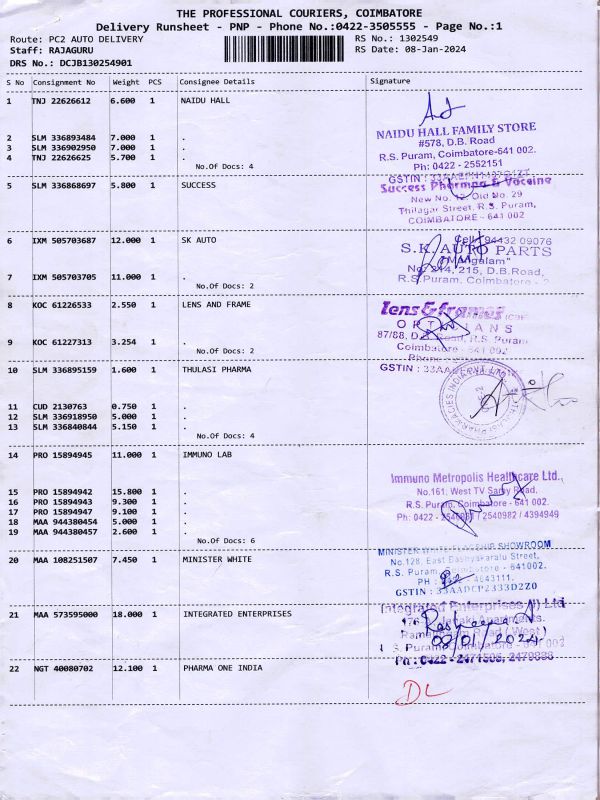 THE PROFESSIONAL COURIERS, COIMBATORE
Delivery Runsheet - PNP - Phone No.:0422-3505555 - Page No.:1
Route: PC2 AUTO DELIVERY
RS No.: 1302549
Staff: RAJAGURU
RS Date: 08-Jan-2024
DRS No.: DCJB130254901
S No Consignment No Weight PCS Consignee Details Signature
1 TNJ 22626612 6.600 1 NAIDU HALL
NAIDU HALL FAMILY STORE
#578, D.B. Road
2 SLM 336893484 7.000 1 .
3 SLM 336902950 7.000 1 .
R.S. Puram, Coimbatore-641 002.
4 TNJ 22626625 5.700 1 .
No.Of Docs: 4
Ph: 0422 - 2552151
GSTIN :
5 SLM 336868697 5.800 1 SUCCESS
Success Pharma & Vaccine
New No. 12, Old No. 29
Thilagar Street, R.S. Puram,
COIMBATORE - 641 002
6 IXM 505703687 12.000 1 SK AUTO
Cell: 94432 09076
S.K. AUTO PARTS
"Mangalam"
7 IXM 505703705 11.000 1 .
No.Of Docs: 2
215, D.B.Road,
R.S.Puram, Coimbatore - 2
8 KOC 61226533 2.550 1 LENS AND FRAME
Lens & frames
87/88, D.B. Road, R.S. Puram
9 KOC 61227313 3.254 1 .
No.Of Docs: 2
Coimbatore - 641 002
Phone
GSTIN :
10 SLM 336895159 1.600 1 THULASI PHARMA
11 CUD 2130763 0.750 1 .
12 SLM 336918950 5.000 1 .
13 SLM 336840844 5.150 1 .
No.Of Docs: 4
14 PRO 15894945 11.000 1 IMMUNO LAB
Immuno Metropolis Healthcare Ltd.,
No.161, West TV Samy Road,
15 PRO 15894942 15.800 1 .
16 PRO 15894943 9.300 1 .
R.S. Puram, Coimbatore - 641 002.
17 PRO 15894947 9.100 1 .
Ph: 0422 - 2540981 / 2540982 / 4394949
18 MAA 944380454 5.000 1 .
19 MAA 944380457 2.600 1 .
No.Of Docs: 6
20 MAA 108251507 7.450 1 MINISTER WHITE
MINISTER WHITE FLAGSHIP SHOWROOM
No.128, East Bashyakaralu Street,
R.S. Puram, Coimbatore - 641002.
PH : 4043111.
GSTIN : 33AADCP2333D2Z0
21 MAA 573595000 18.000 1 INTEGRATED ENTERPRISES
Integrated Enterprises (I) Ltd
Apartments,
Road (West)
08/01/2024
R.S. Puram, Coimbatore - 641 002
Ph : 0422 - 2471506, 2479838
22 NGT 40080702 12.100 1 PHARMA ONE INDIA
DL